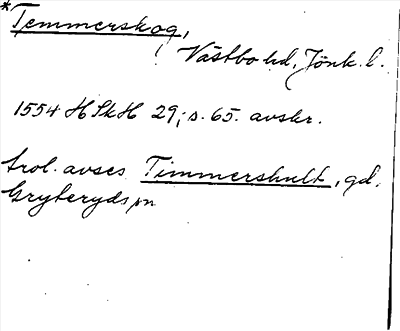 *Temmerskog,
! Västbo hd, Jönk. l.
1554 HSkH 29; s. 65. avskr.
trol. avses Timmershult, gd.
Gryteryds sn